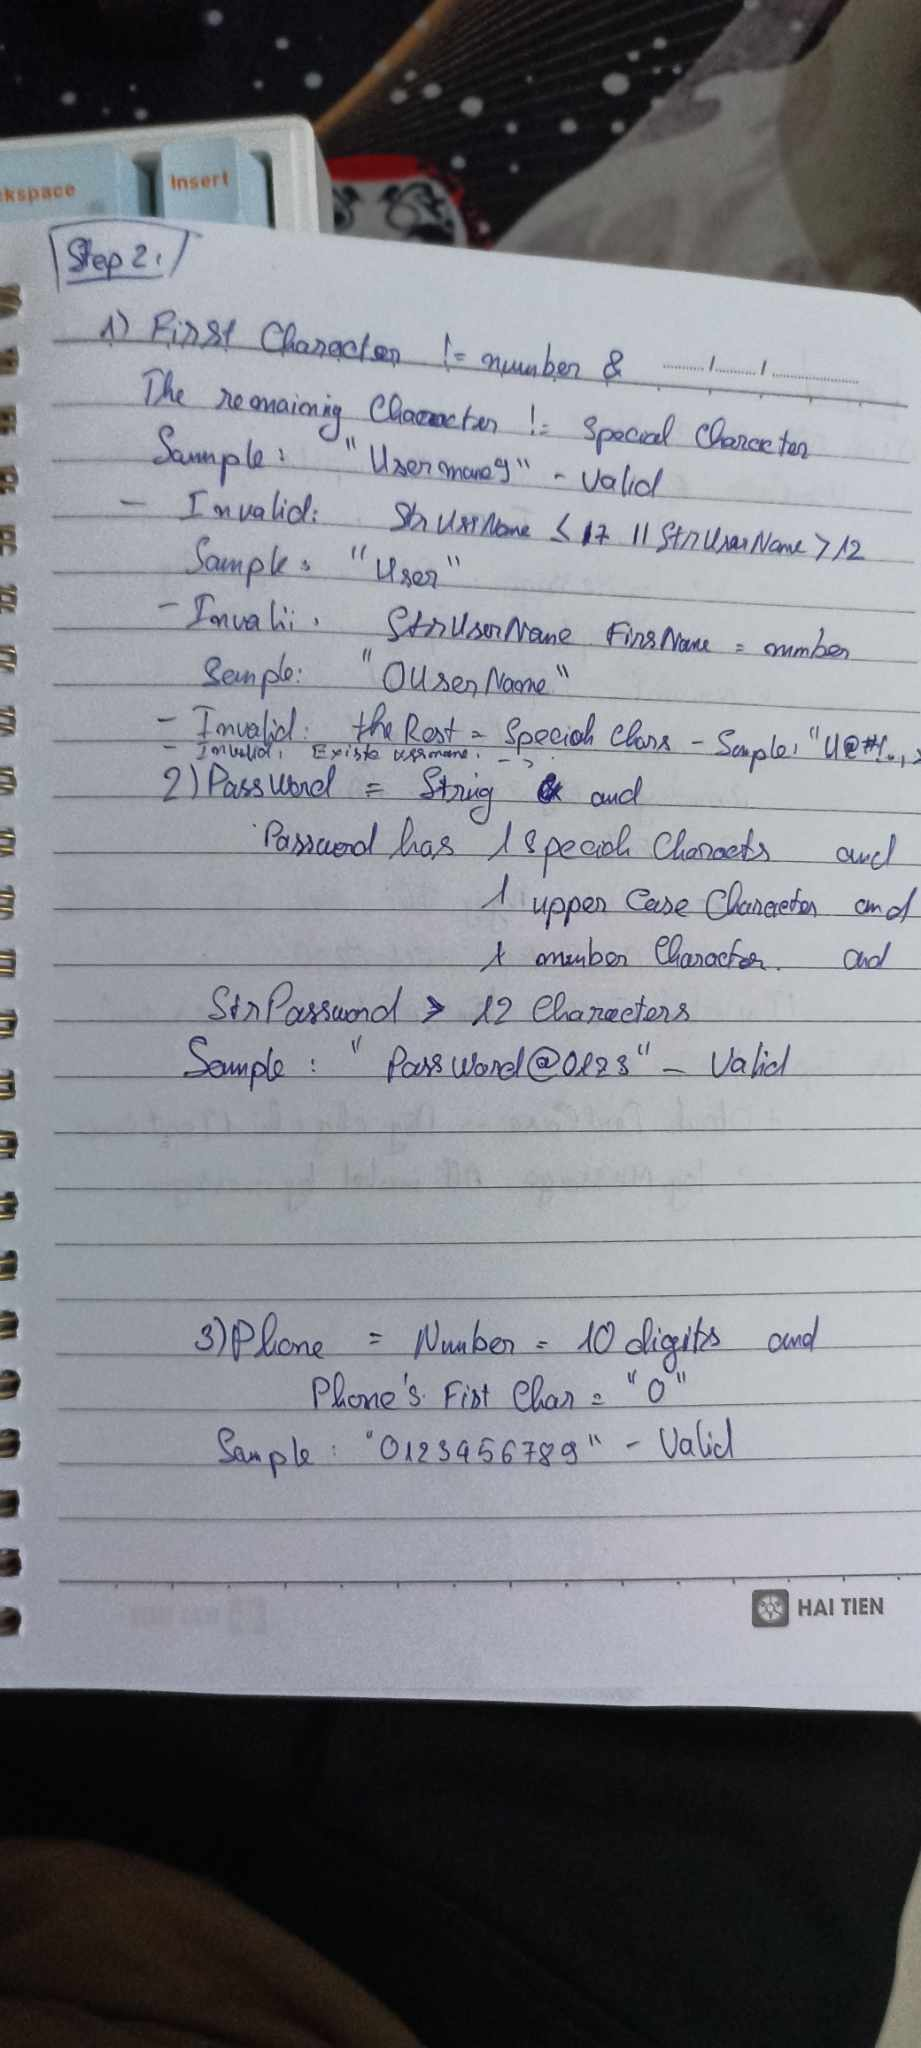 kspace
Insert
Step 2:
1) First Character != number &
The remaining Character != Special Character
Sample: "Username9" - Valid
- Invalid: StrUserName > 12
Sample: "User"
- Invalii: StrUserName FirsName = number
Sample: "0UserName"
- Invalid: the Rest = Speciah Chars - Sample: "U@#!..,
- Invalid: Existe username.
2) PassWord = String and
Password has 1 Speciah Characts and
1 upper Case Character and
1 number Character. and
StrPassword > 12 Characters
Sample: "PassWord@0123" - Valid
3) Phone = Number = 10 digits and
Phone's Fist Char = "0"
Sample: "0123456789" - Valid
HAI TIEN